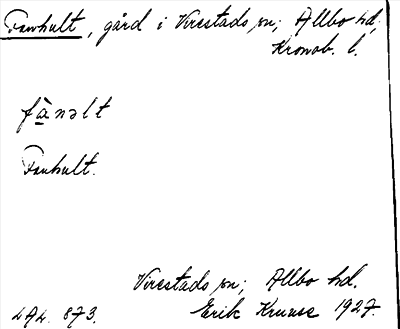 Fanhult, gård i Virestads sn; Allbo hd,
Kronob. l.
fànəlt
Fanhult.
Virestads sn; Allbo hd.
LAL. 873. Erik Kruuse 1927.